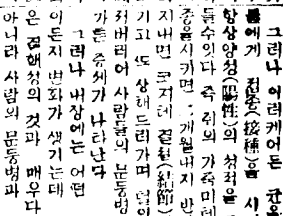 그러나 어러케어든 균을
를에게 접종(接種)을 시
항상양성(陽性)의 성적을
들수잇다 즉 쥐의 가죽미테
종을시키면 一개월내지 반
지내면 그자테 결절(結節)
기고 또 상해드러가며 털의
저버리어 사람들의 문둥병
가튼 증세가 나타난다
그러나 내장에는 어떤
이든지 변화가 생기는데
은 결핵성의 것과 매우 다
아니라 사람의 문둥병과